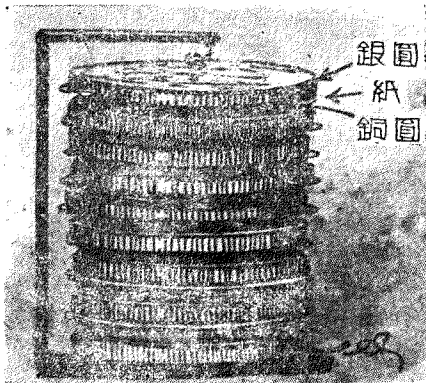 銀圓
紙
銅圓